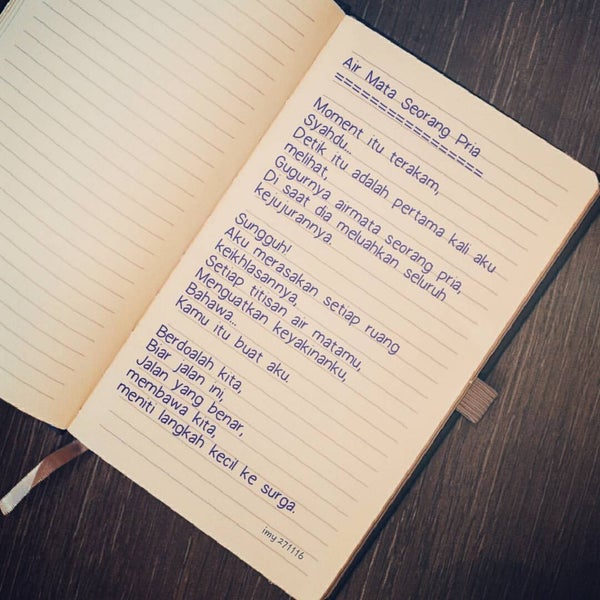 Air Mata Seorang Pria
=================
Moment itu terakam,
Syahdu...
Detik itu adalah pertama kali aku
melihat,
Gugurnya airmata seorang pria,
Di saat dia meluahkan seluruh
kejujurannya.
Sungguh!
Aku merasakan setiap ruang
keikhlasannya,
Setiap titisan air matamu,
Menguatkan keyakinanku,
Bahawa...
Kamu itu buat aku.
Berdoalah kita,
Biar jalan ini,
Jalan yang benar,
membawa kita,
meniti langkah kecil ke surga.
imy 271116